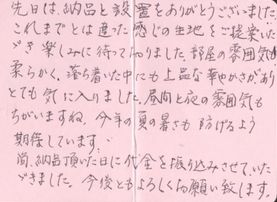 先日は、納品と設置をありがとうございました。
これまでとは違った感じの生地をご提案いただ
き楽しみに待っておりました。部屋の雰囲気も
柔らかく、落ち着いた中にも上品な華やかさがあり
とても気に入りました。昼間と夜の雰囲気も
ちがいますね、今年の夏の暑さも防げるよう
期待しています。
尚、納品頂いた日に代金を振り込みさせていた
だきました。今後ともよろしくお願い致します。